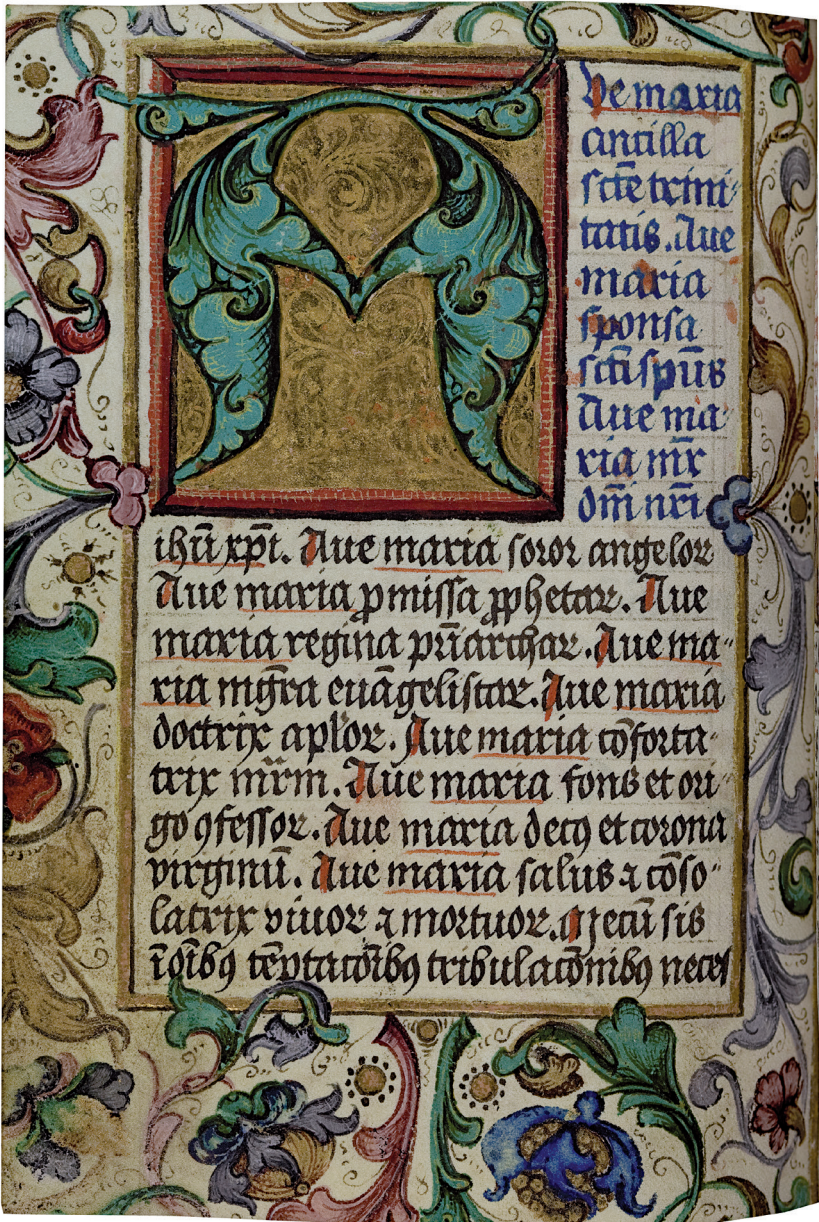 Aue maria
ancilla
sctē trini-
tatis. Aue
maria
sponsa
scti spūs
Aue ma-
ria mr̄
dnī nrī
ihū xp̄i. Aue maria soror angeloꝝ
Aue maria ꝓmissa ꝓphetaꝝ. Aue
maria regina pr̄iarchaꝝ. Aue ma-
ria mgr̄a euāgelistaꝝ. Aue maria
doctrix aplōꝝ. Aue maria cōforta-
trix mr̄m. Aue maria fons et ori-
go ꝯfessoꝝ. Aue maria decꝯ et corona
virginū. Aue maria salus ⁊ cōso-
latrix viuoꝝ ⁊ mortuoꝝ. Mecū sis
ī oībꝯ tēptatōībꝯ tribulatōnibꝯ neces